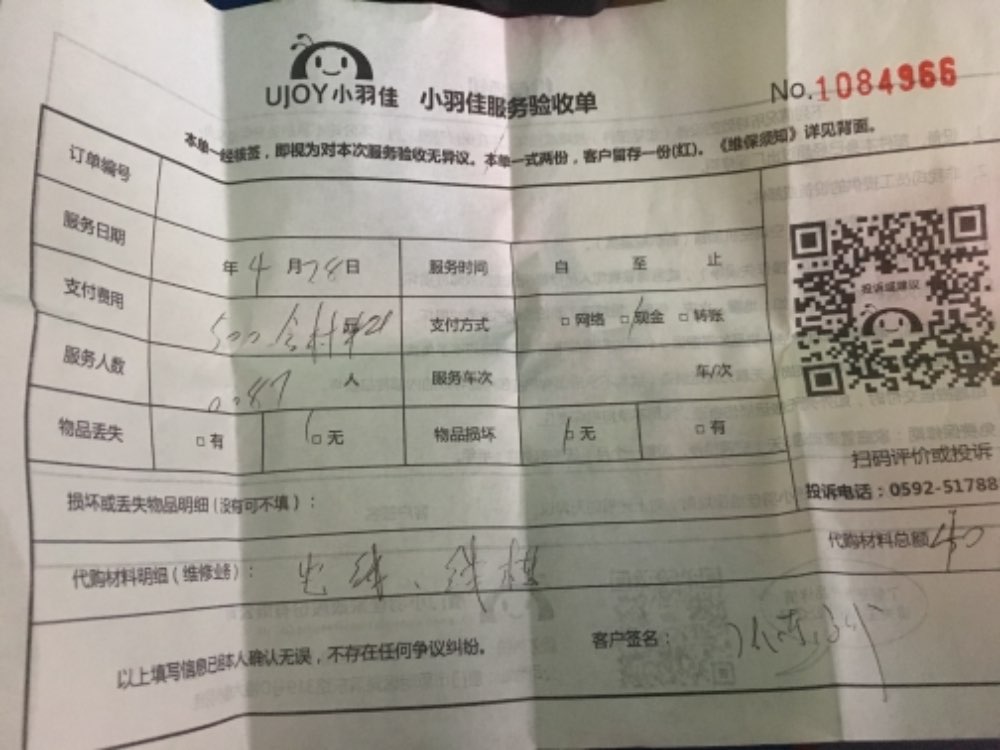 UJOY小羽佳 小羽佳服务验收单
No.1084966
本单一经核签，即视为对本次服务验收无异议。本单一式两份，客户留存一份(红)。《维保须知》详见背面。
订单编号
服务日期 年 4 月 28 日 服务时间 自 至 止
支付费用 500 含材料 支付方式 □网络 □现金 □转账
服务人数 人 服务车次 车/次
物品丢失 □有 □无 物品损坏 □无 □有
投诉或建议
扫码评价或投诉
投诉电话：0592-51788
损坏或丢失物品明细(没有可不填)：
代购材料明细(维修业务)： 电线、线槽
代购材料总额
以上填写信息已经本人确认无误，不存在任何争议纠纷。 客户签名：